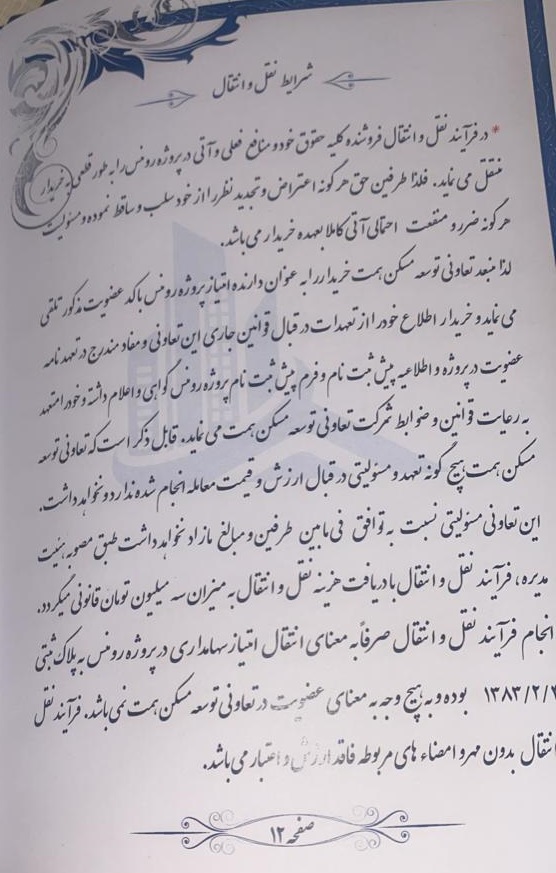 شرایط نقل و انتقال
* در فرآیند نقل و انتقال فروشنده کلیه حقوق خود و منافع فعلی و آتی در پروژه رومنس را به طور قطعی به خریدار
منتقل می نماید. فلذا طرفین حق هرگونه اعتراض و تجدید نظر را از خود سلب و ساقط نموده و مسئولیت
هرگونه ضرر و منفعت احتمالی آتی کاملا بعهده خریدار می باشد.
لذا منبعد تعاونی توسعه مسکن همت خریدار را به عنوان دارنده امتیاز پروژه رومنس با کد عضویت مذکور تلقی
می نماید و خریدار اطلاع خود را از تعهدات در قبال قوانین جاری این تعاونی و مفاد مندرج در تعهدنامه
عضویت در پروژه و اطلاعیه پیش ثبت نام و فرم پیش ثبت نام پروژه رومنس گواهی و اعلام داشته و خود را متعهد
به رعایت قوانین و ضوابط شرکت تعاونی توسعه مسکن همت می نماید. قابل ذکر است که تعاونی توسعه
مسکن همت هیچ گونه تعهد و مسئولیتی در قبال ارزش و قیمت معامله انجام شده ندارد و نخواهد داشت.
این تعاونی مسئولیتی نسبت به توافق فی مابین طرفین و مبالغ مازاد نخواهد داشت طبق مصوبه هیئت
مدیره، فرآیند نقل و انتقال با دریافت هزینه نقل و انتقال به میزان سه میلیون تومان قانونی میگردد.
انجام فرآیند نقل و انتقال صرفاً به معنای انتقال امتیاز سهامداری در پروژه رومنس به پلاک ثبتی
۱۳۸۳/۲/۷ بوده و به هیچ وجه به معنای عضویت در تعاونی توسعه مسکن همت نمی باشد. فرآیند نقل
انتقال بدون مهر و امضاء های مربوطه فاقد ارزش و اعتبار می باشد.
صفحه ۱۲